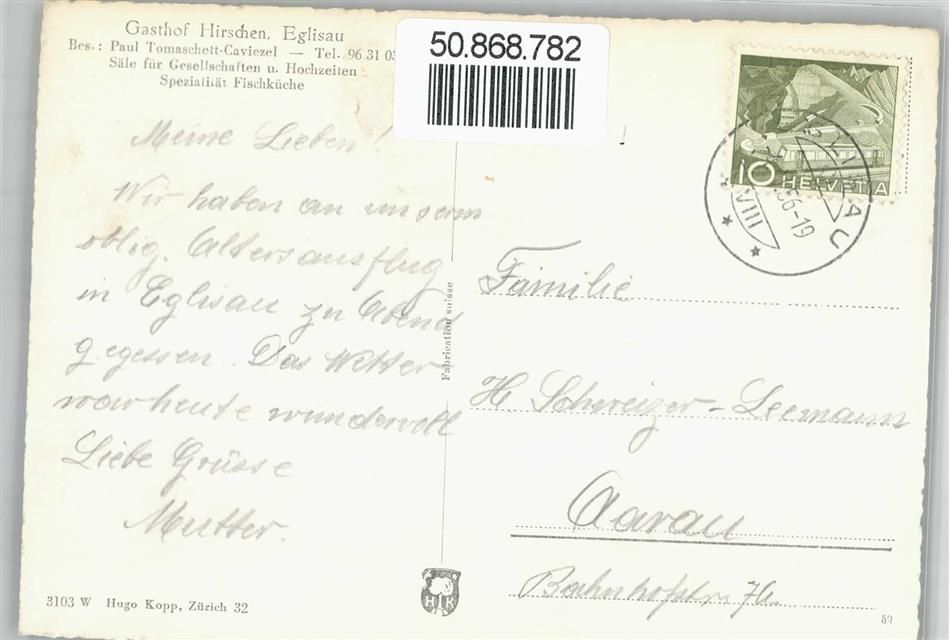 Gasthof Hirschen, Eglisau
Bes.: Paul Tomaschett-Caviezel — Tel. 96 31 03
Säle für Gesellschaften u. Hochzeiten
Spezialität Fischküche
50.868.782
Meine Lieben!
Wir haben an unserm
oblig. Altersausflug
in Eglisau zu Abend
gegessen. Das Wetter
war heute wundervoll
Liebe Grüsse
Mutter.
3103 W Hugo Kopp, Zürich 32
Fabrication suisse
HK
10 HELVETIA
VIII 56-19
Familie
H. Schweizer-Leemann
Aarau
Bahnhofstr.
59